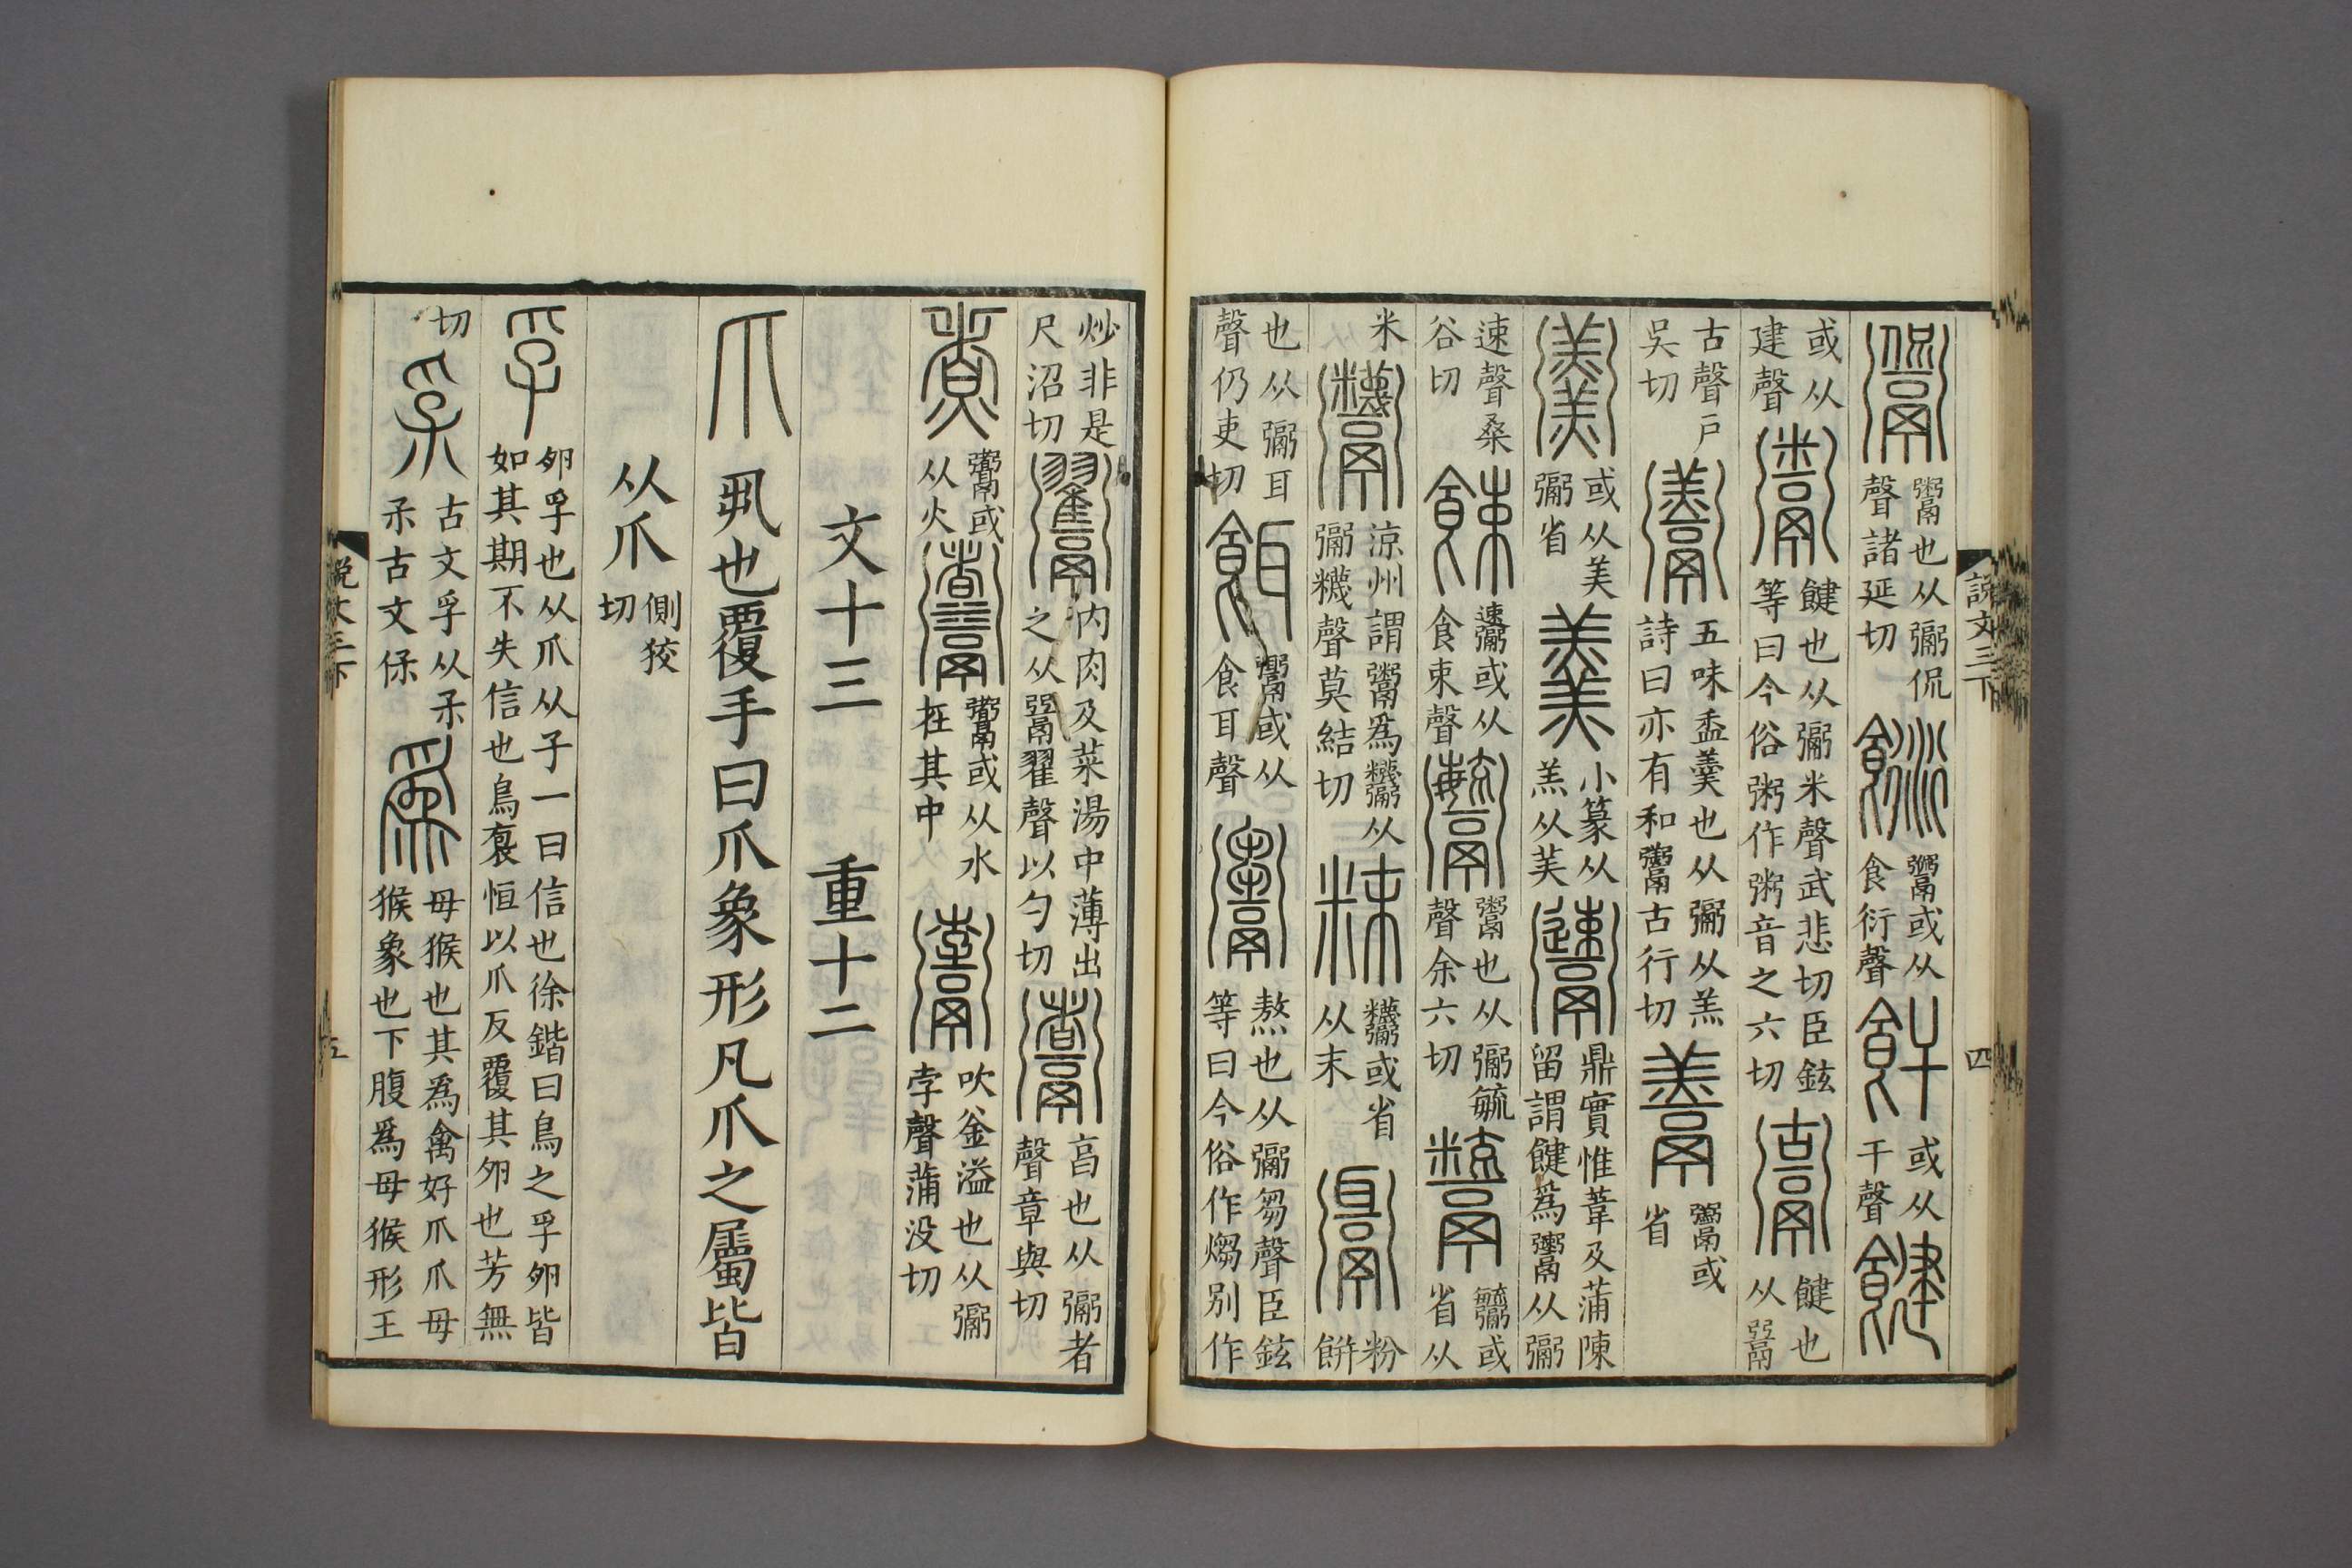 說文三下 四
𩱨鬻也从䰜侃聲諸延切餰鬻或从食衍聲飦或从干聲䭈
或从建聲鬻䭈也从䰜米聲武悲切臣鉉等曰今俗粥作粥音之六切䭈也从
古聲戶吳切五味盉羹也从䰜从羔詩曰亦有和古行切或省
或从美䰜省羹小篆从羔从美鼎實惟葦及蒲陳留謂䭈爲从䰜
速聲桑谷切餗或从食束聲鬻也从䰜毓聲余六切或省从
米涼州謂鬻爲从䰜聲莫結切𥹏或省从末粉餅
也从䰜耳聲仍吏切餌或从食耳聲熬也从䰜芻聲臣鉉等曰今俗作㷅别作
炒非是尺沼切內肉及菜湯中薄出之从翟聲以勺切亯也从䰜者聲章與切
煑或从火或从水在其中吹釡溢也从䰜孛聲蒲没切
文十三 重十二
爪丮也覆手曰爪象形凡爪之屬皆
从爪側狡切
孚卵孚也从爪从子一曰信也徐鍇曰鳥之孚卵皆如其期不失信也鳥裒恒以爪反覆其卵也芳無
切古文孚从𤓽𤓽古文𠈃爲母猴也其爲禽好爪爪母猴象也下腹爲母猴形王
說文三下 五